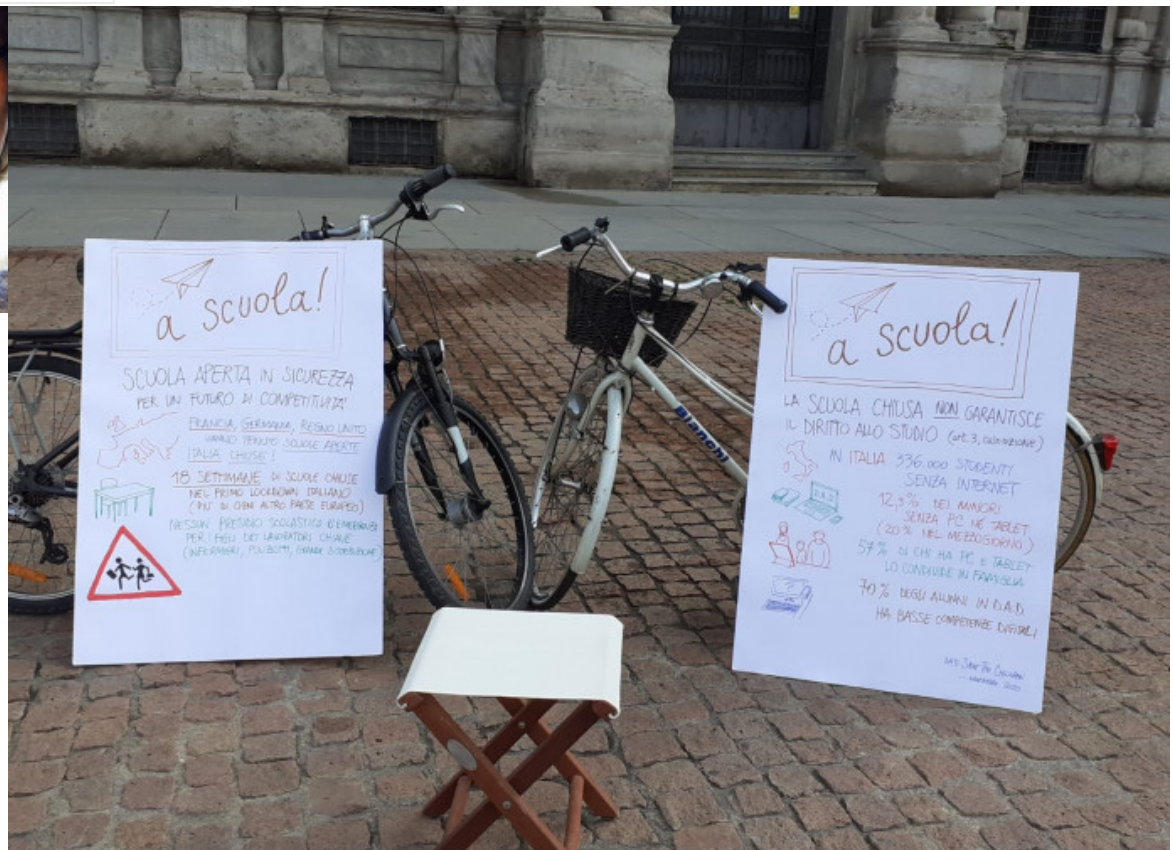 a scuola!
SCUOLA APERTA IN SICUREZZA
PER UN FUTURO DI COMPETITIVITA'
FRANCIA, GERMANIA, REGNO UNITO
HANNO TENUTO SCUOLE APERTE
ITALIA CHIUSE!
18 SETTIMANE DI SCUOLE CHIUSE
NEL PRIMO LOCKDOWN ITALIANO
(PIU' DI OGNI ALTRO PAESE EUROPEO)
NESSUN PRESIDIO SCOLASTICO D'EMERGENZA
PER I FIGLI DEI LAVORATORI CHIAVE
(INFERMIERI, POLIZIOTTI, GRANDE DISTRIBUZIONE)
Bianchi
a scuola!
LA SCUOLA CHIUSA NON GARANTISCE
IL DIRITTO ALLO STUDIO (art. 3, Costituzione)
IN ITALIA 336.000 STUDENTI
SENZA INTERNET
12,3% DEI MINORI
SENZA PC NÉ TABLET
(20% NEL MEZZOGIORNO)
57% DI CHI HA PC E TABLET
LO CONDIVIDE IN FAMIGLIA
70% DEGLI ALUNNI IN D.A.D.
HA BASSE COMPETENZE DIGITALI
Save The Children
2020